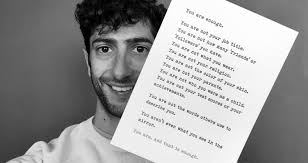 You are enough.
You are not your job title.
You are not how many 'friends' or
'followers' you have.
You are not what you wear.
You are not your religion.
You are not the color of your skin.
You are not your parents.
You are not who you were as a child.
You are not your test scores or your
achievements.
You are not the words others use to
describe you.
You aren't even what you see in the
mirror.
You are. and that is enough.